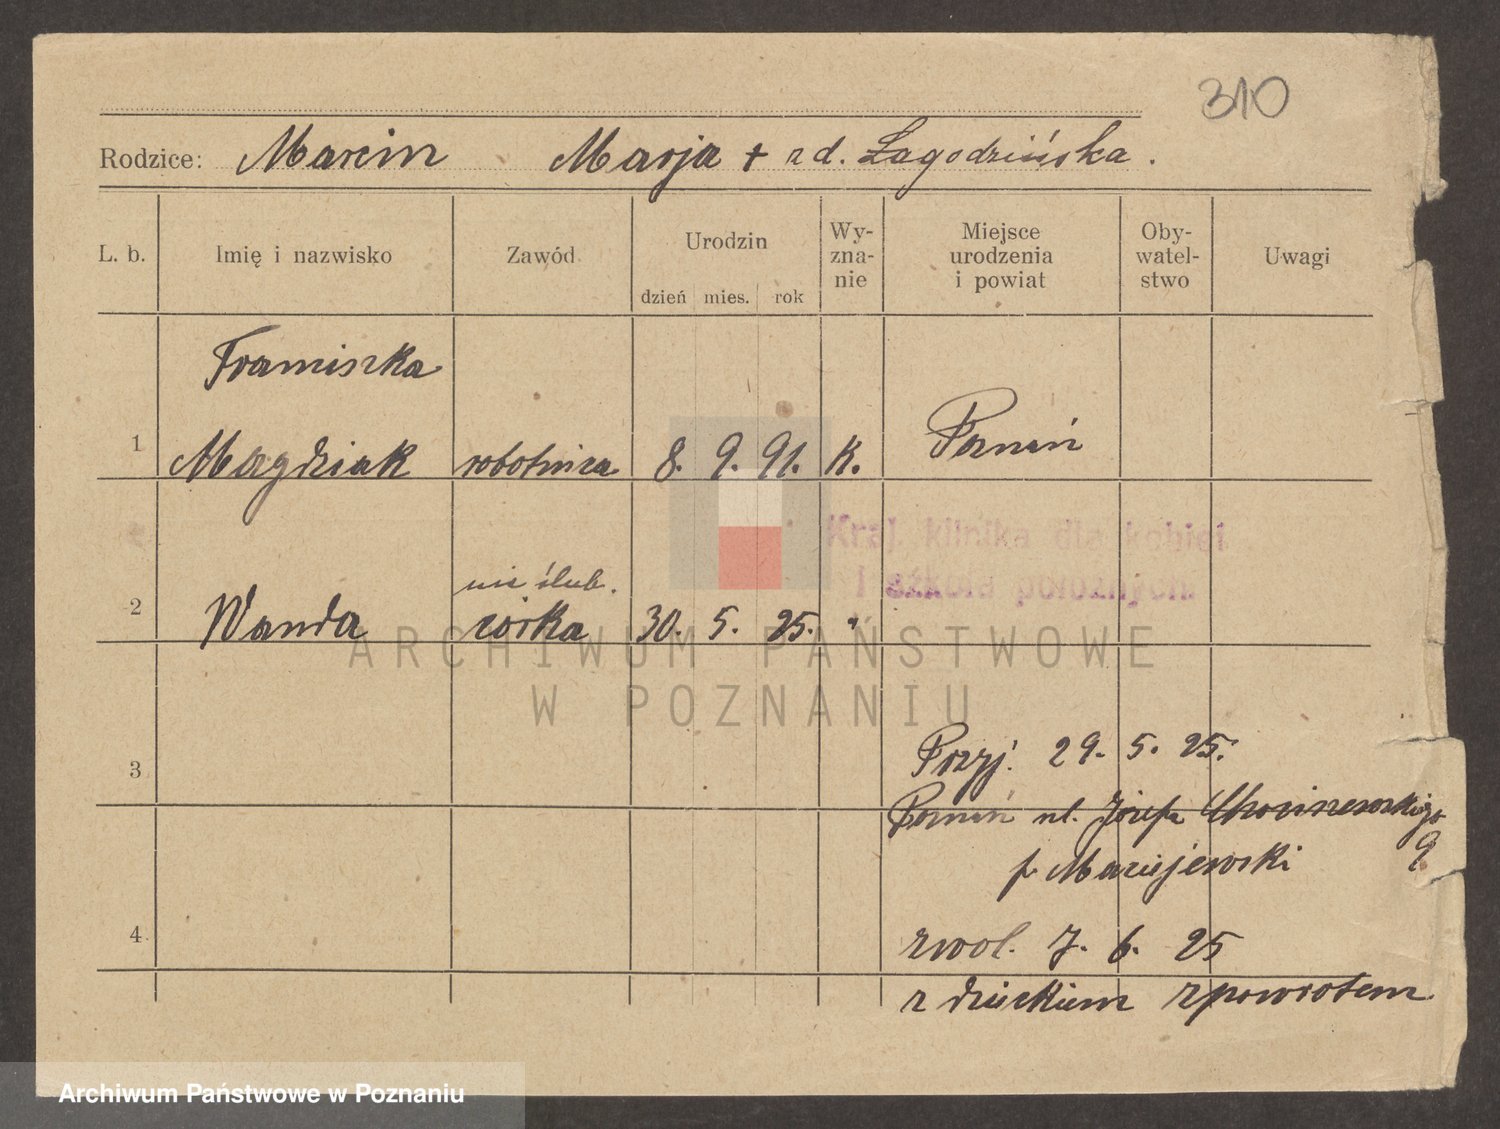 310
Rodzice: Marcin Marja + zd. Łagodzińska.
L. b. Imię i nazwisko Zawód Urodzin dzień mies. rok Wy-zna-nie Miejsce urodzenia i powiat Oby-watel-stwo Uwagi
Franciszka
1 Magdziak robotnica 8. 9. 91. K. Poznań
Kraj. klinika dla kobiet
i szkoła położnych
nie ślub.
2 Wanda córka 30. 5. 25. "
ARCHIWUM PAŃSTWOWE
W POZNANIU
3
Przyj. 29. 5. 25.
Poznań ul. Józefa Chociszewskiego
9
p Maciejewski
4
zwol. 7. 6. 25
z dzieckiem zpowrotem
Archiwum Państwowe w Poznaniu